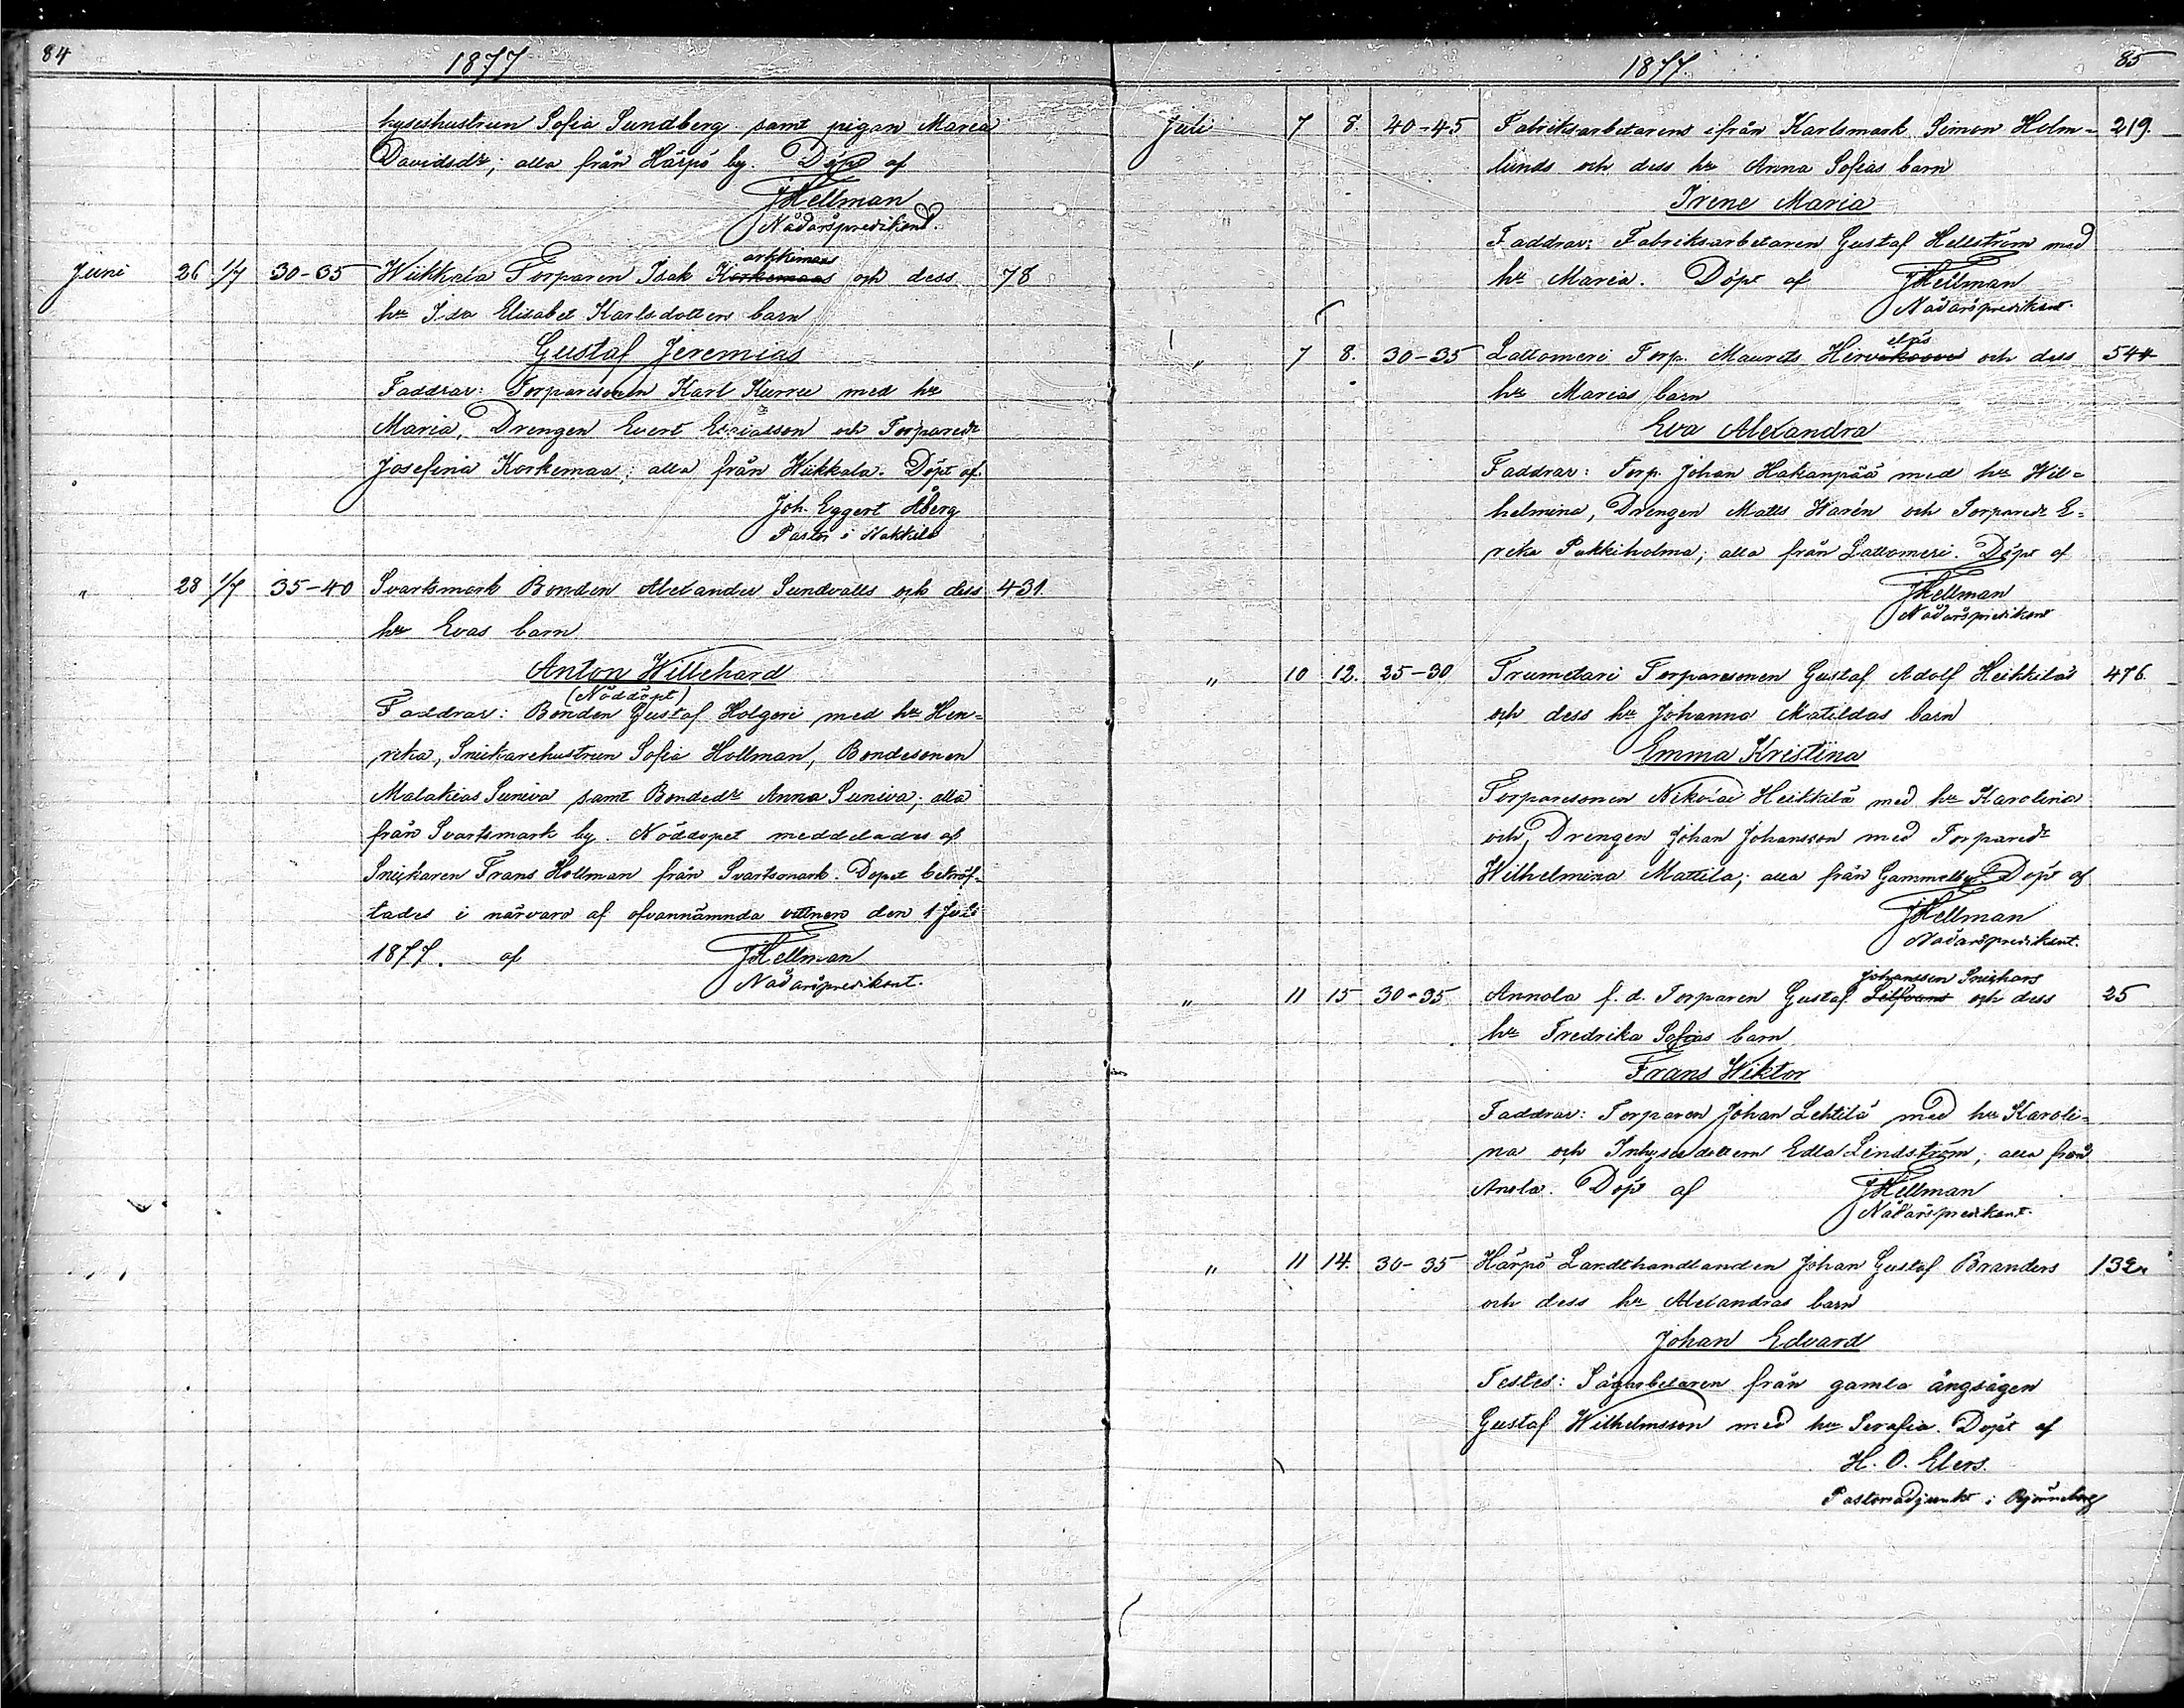 84
1877
hyseshustrun Sofia Sundberg samt pigan Maria
Davidsdr; alla från Härpö by. Döpt af
JHellman
Nådårspredikant.
arkkimaas
Juni 26 1/7 30-35 Wiikkala Torparen Isak Korkemaas och dess 78
hu Ida Elisabet Karlsdotters barn
Gustaf Jeremias
Faddrar: Torparesonen Karl Kurru med hu
Maria, Drengen Evert Esaiasson och Torparedr
Josefina Korkemaa; alla från Wiikkala. Döpt af
Joh. Eggert Åberg
Pastor i Nakkila
" 28 1/7 35-40 Svartsmark Bonden Alexander Sundvalls och dess 431.
hu Evas barn
Anton Willehard
(Nöddöpt)
Faddrar: Bonden Gustaf Holgeri med hu Hen-
rika, Snickarehustrun Sofia Hollman, Bondesonen
Malakias Suniva samt Bondedr Anna Suniva; alla
från Svartsmark by. Nöddopet meddelades af
Snickaren Frans Hollman från Svartsmark. Dopet bekräf-
tades i närvaro af ofvannämnda vittnen den 1 Juli
1877. af JHellman
Nådårspredikant.
1877.
85
Juli 7 8. 40-45 Fabriksarbetarens ifrån Karlsmark Simon Holm- 219.
lunds och dess hu Anna Sofias barn
Irene Maria
Faddrar: Fabriksarbetaren Gustaf Hellström med
hu Maria. Döpt af JHellman
Nådårspredikant.
" 7 8. 30-35 Lattomeri Torp. Maurits och dess 544
hu Marias barn
Eva Alexandra
Faddrar: Torp. Johan Hakanpää med hu Wil-
helmina, Drengen Matts Warén och Torparedr E-
rika Pakkiholma; alla från Lattomeri. Döpt af
JHellman
Nådårspredikant
" 10 12. 25-30 Trumetari Torparesonen Gustaf Adolf Heikkiläs 476.
och dess hu Johanna Matildas barn
Emma Kristina
Torparesonen Nikolai Heikkilä med hu Karolina
och Drengen Johan Johansson med Torparedr
Wilhelmina Mattila; alla från Gammelby. Döpt af
JHellman
Nådårspredikant.
Johansson Snickars
" 11 15 30-35 Annola f. d. Torparen Gustaf Silfvans och dess 25
hu Fredrika Sofias barn
Frans Wiktor
Faddrar: Torparen Johan Lehtilä med hu Karoli-
na och Inhysesdottern Edla Lindström; alla från
Anola. Döpt af JHellman
Nådårspredikant.
" 11 14. 30-35 Härpö Landthandlanden Johan Gustaf Branders 132
och dess hu Alexandras barn
Johan Edvard
Testes: Sågarbetaren från gamla ångsågen
Gustaf Wilhelmsson med hu Serafia. Döpt af
H. O. Elers.
Pastorsadjunkt i Björneborg